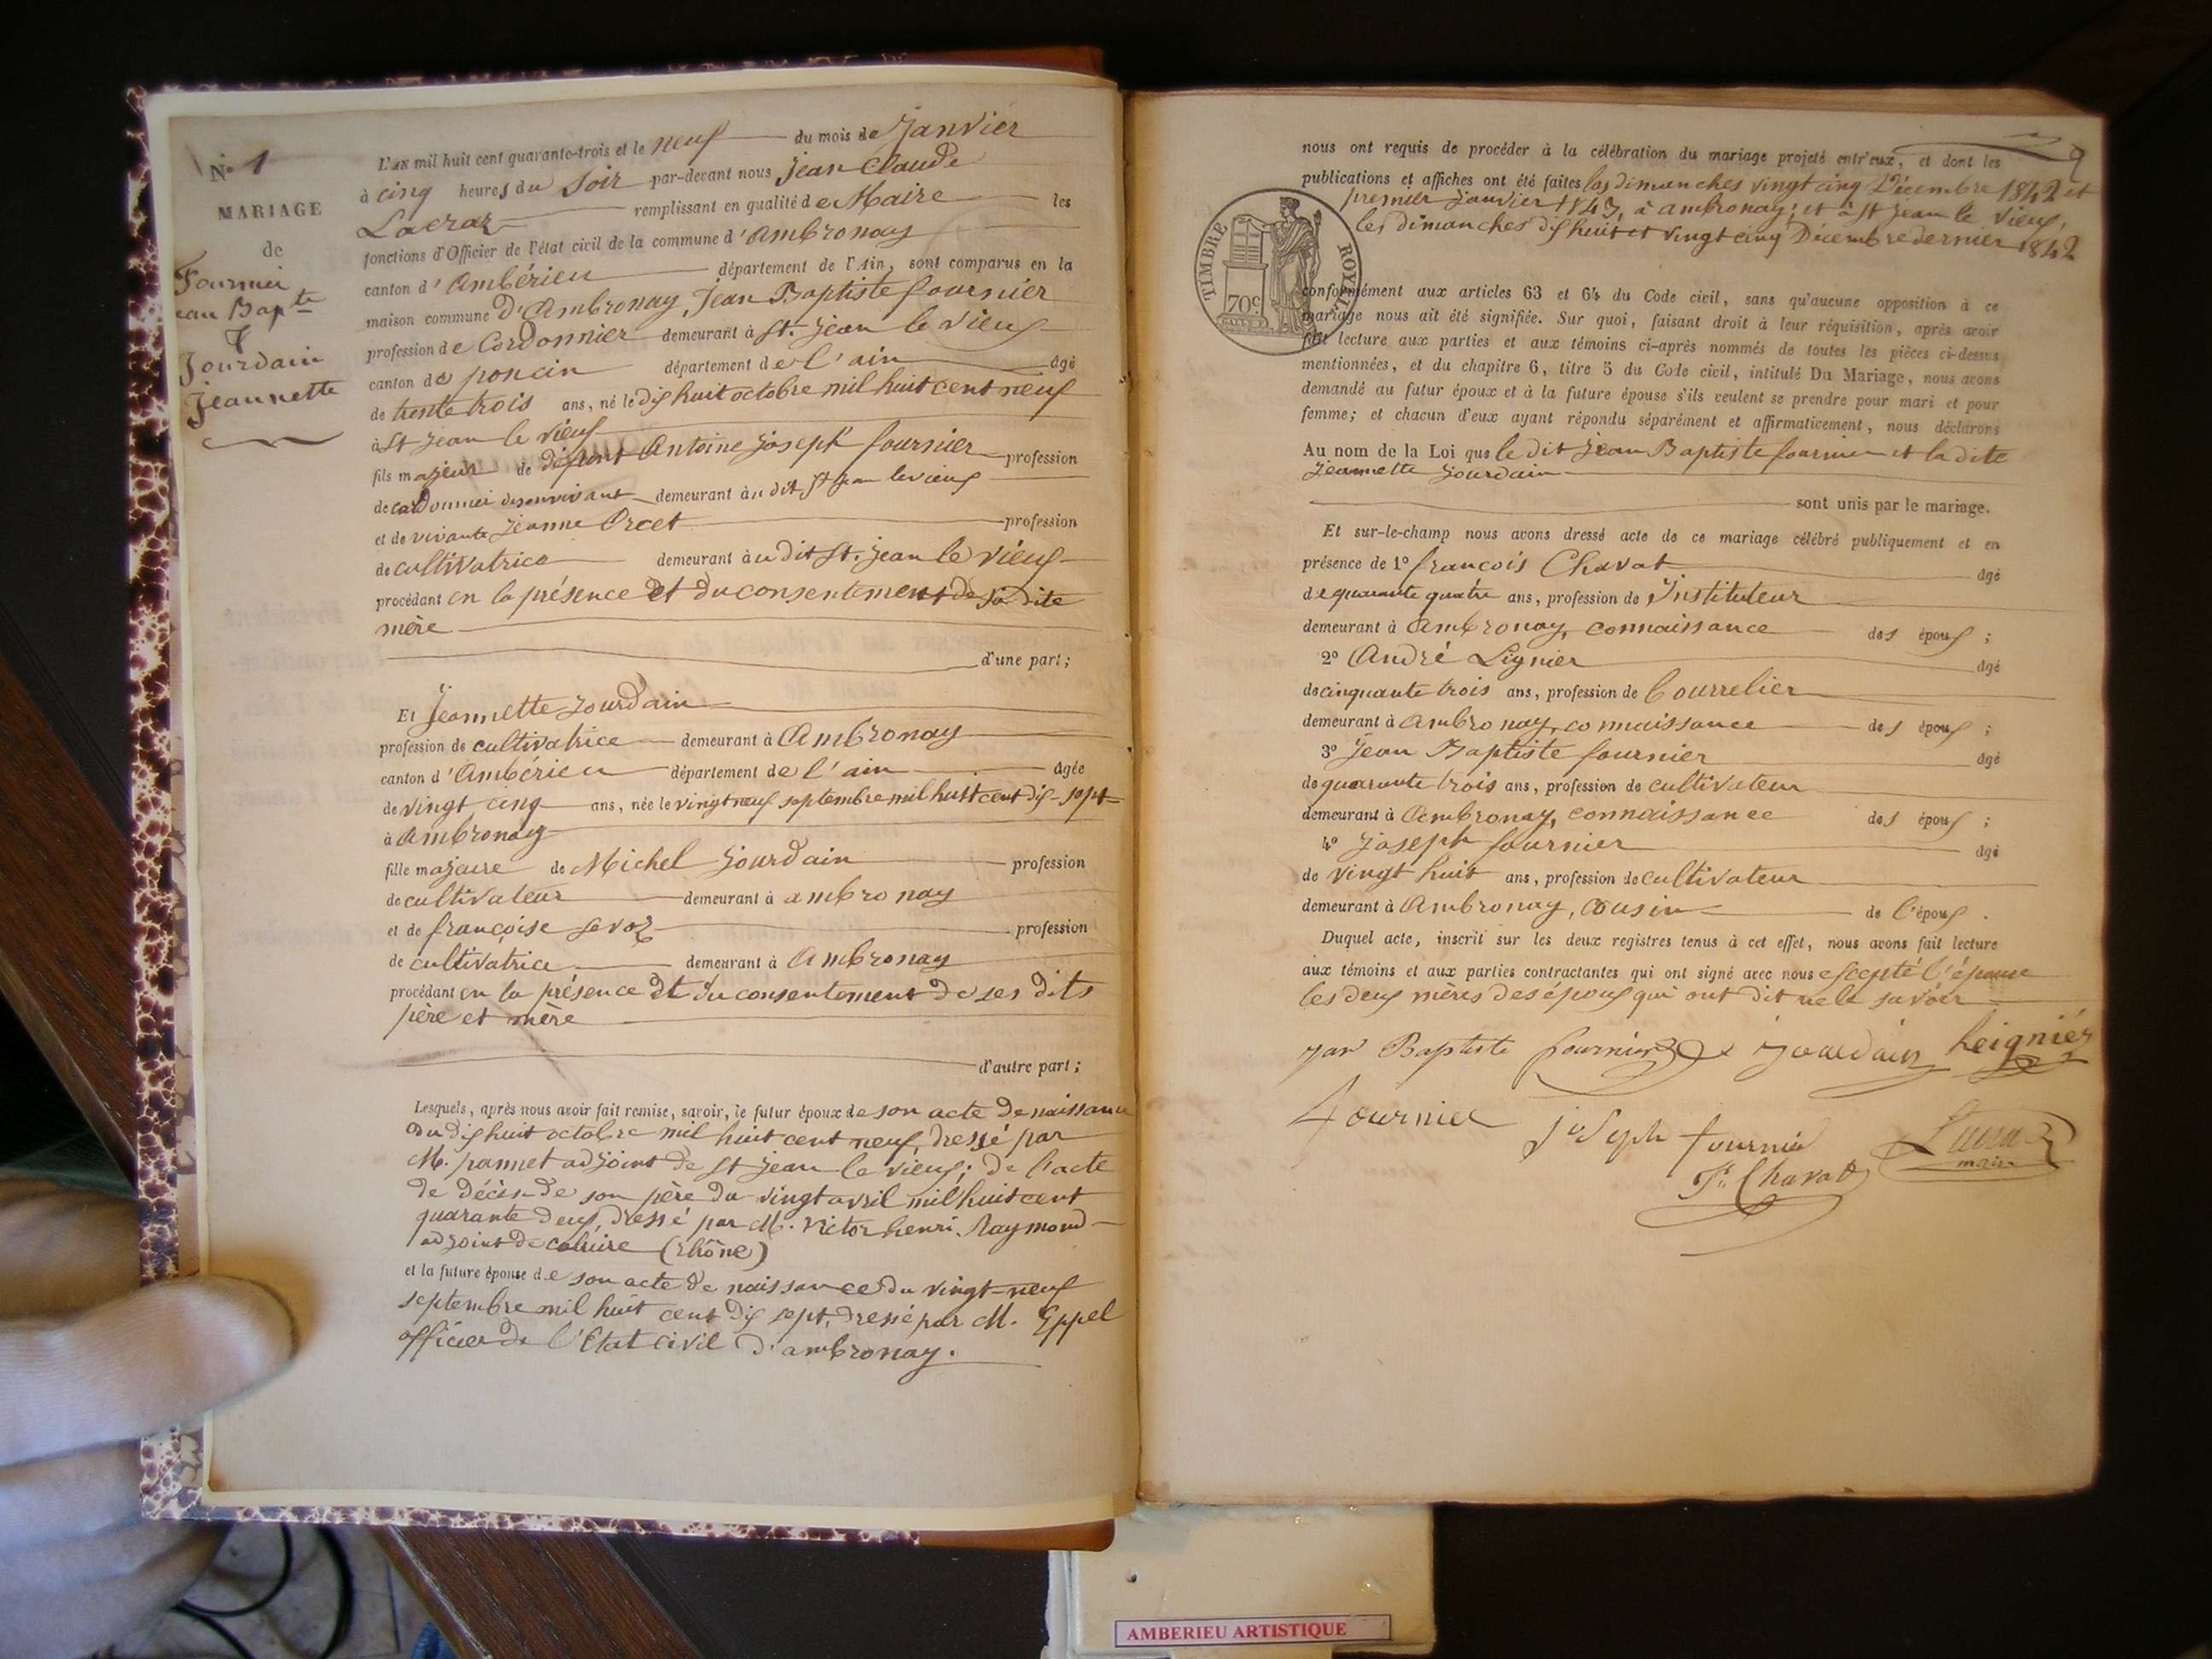 N.° 1
MARIAGE
de
Fournier
ean Bap.te
&
Jourdain
Jeannette
L'an mil huit cent quarante-trois et le neuf du mois de Janvier
à cinq heures du Soir par-devant nous Jean Claude
Lacraz remplissant en qualité de Maire les
fonctions d'Officier de l'état civil de la commune d'Ambronay
canton d'Ambérieu département de l'Ain, sont comparus en la
maison commune d'Ambronay, Jean Baptiste fournier
profession de Cordonnier demeurant à St. Jean le Vieux
canton de poncin département de l'ain âgé
de trente trois ans, né le dix huit octobre mil huit cent neuf
à St Jean le Vieux
fils majeur de défunt Antoine Joseph fournier profession
de cordonnier de son vivant demeurant au dit St Jean le vieux
et de vivante Jeanne Orcet profession
de cultivatrice demeurant au dit St. Jean le Vieux
procédant en la présence et du consentement de sa dite
mère
d'une part;
Et Jeannette Jourdain
profession de cultivatrice demeurant à Ambronay
canton d'Ambérieu département de l'ain âgée
de vingt cinq ans, née le vingt neuf septembre mil huit cent dix-sept
à Ambronay
fille majeure de Michel Jourdain profession
de cultivateur demeurant à ambronay
et de françoise Savoz profession
de cultivatrice demeurant à Ambronay
procédant en la présence et du consentement de ses dits
père et mère
d'autre part;
Lesquels, après nous avoir fait remise, savoir, le futur époux de son acte de naissance
du dix huit octobre mil huit cent neuf, dressé par
M. pannet adjoint de St Jean le vieux; de l'acte
de décès de son père du vingt avril mil huit cent
quarante deux, dressé par M. Victor henri Raymond
adjoint de caluire (rhône)
et la future épouse de son acte de naissance du vingt-neuf
septembre mil huit cent dix sept, dressé par M. Eppel
officier de l'Etat civil d'ambronay.
nous ont requis de procéder à la célébration du mariage projeté entr'eux, et dont les
publications et affiches ont été faites les dimanches vingt cinq Décembre 1842 et
premier Janvier 1843, à ambronay; et à St Jean le Vieux,
les dimanches dix huit et vingt cinq Décembre dernier 1842
TIMBRE ROYAL
70c
conformément aux articles 63 et 64 du Code civil, sans qu'aucune opposition à ce
mariage nous ait été signifiée. Sur quoi, faisant droit à leur réquisition, après avoir
fait lecture aux parties et aux témoins ci-après nommés de toutes les pièces ci-dessus
mentionnées, et du chapitre 6, titre 5 du Code civil, intitulé Du Mariage, nous avons
demandé au futur époux et à la future épouse s'ils veulent se prendre pour mari et pour
femme; et chacun d'eux ayant répondu séparément et affirmativement, nous déclarons
Au nom de la Loi que le dit Jean Baptiste fournier et la dite
Jeannette Jourdain
sont unis par le mariage.
Et sur-le-champ nous avons dressé acte de ce mariage célébré publiquement et en
présence de 1° françois Chavat âgé
de quarante quatre ans, profession de Instituteur
demeurant à Ambronay, connaissance des époux;
2° André Lignier âgé
de cinquante trois ans, profession de Bourrelier
demeurant à Ambronay, connaissance des époux;
3° Jean Baptiste fournier âgé
de quarante trois ans, profession de cultivateur
demeurant à Ambronay, connaissance des époux;
4° Joseph fournier âgé
de vingt huit ans, profession de cultivateur
demeurant à Ambronay, cousin de l'époux.
Duquel acte, inscrit sur les deux registres tenus à cet effet, nous avons fait lecture
aux témoins et aux parties contractantes qui ont signé avec nous excepté l'épouse
les deux mères des époux qui ont dit ne le savoir
jan Baptiste fournier Jourdain Leigniér
fournier joseph fournier
F. Chavat
maire
AMBERIEU ARTISTIQUE